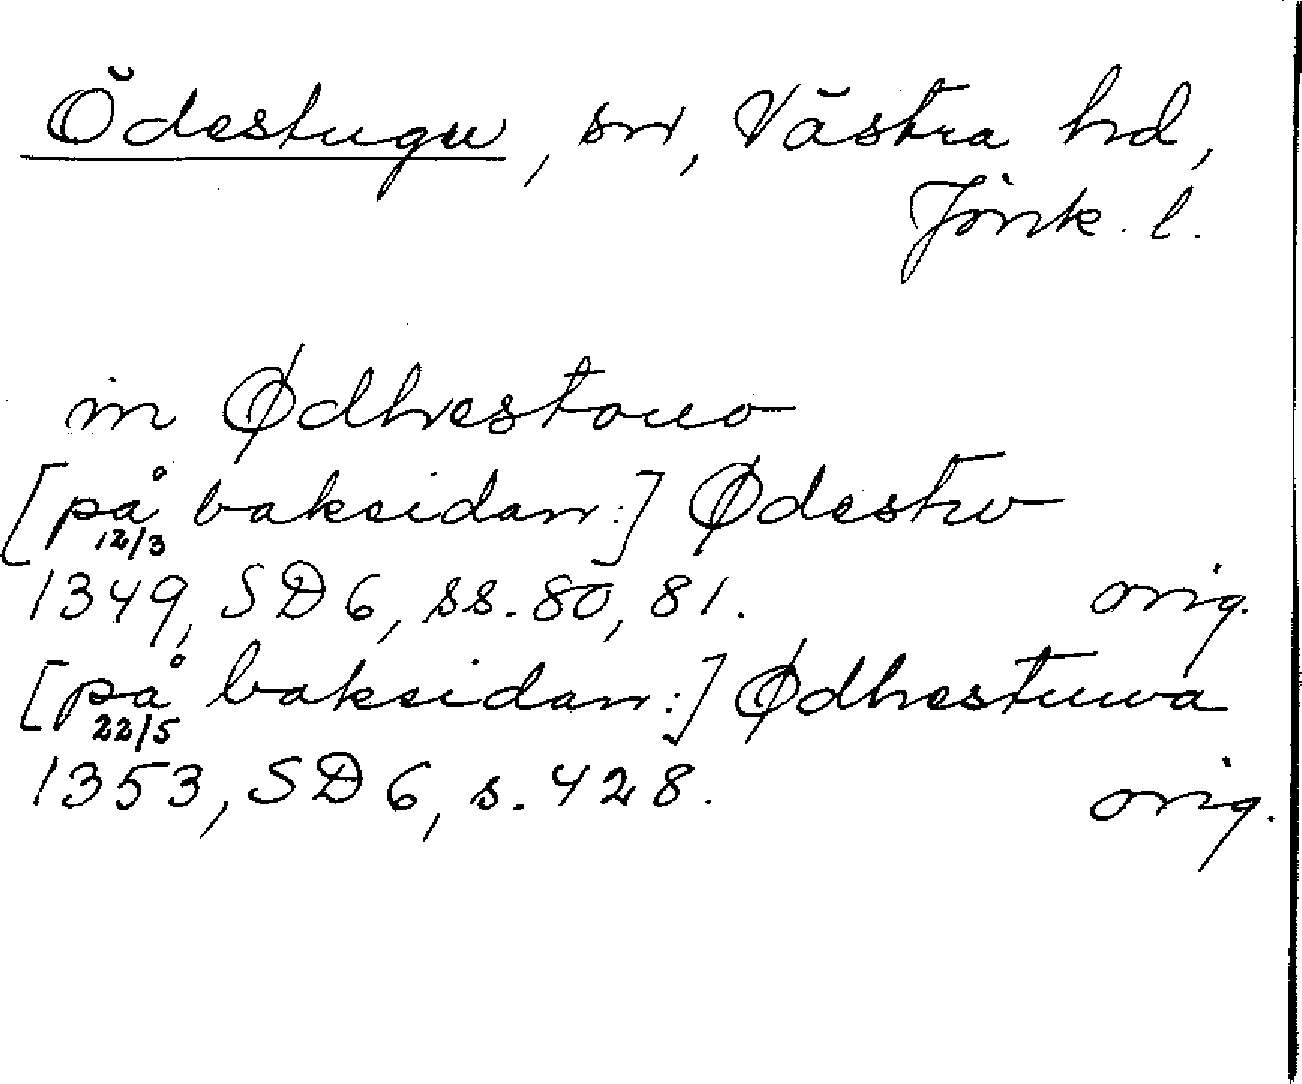 Ödestugu, sn, Västra hd,
Jönk. l.
in Ødhestouo
[på baksidan:] Ødestw
12/3
1349, SD 6, ss. 80, 81. orig.
[på baksidan:] Ødhestuwa
22/5
1353, SD 6, s. 428. orig.